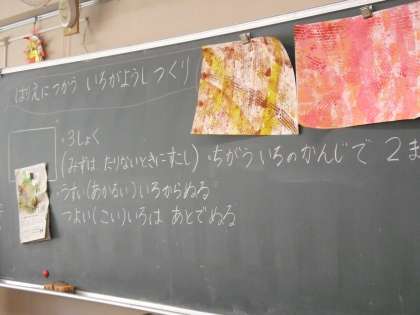 はりえにつかう いろがようしつくり
・3しょく
(みずは たりないときにすこし) ・ちがう いろのかんじで 2ま
・うすい(あかるい)いろからぬる
つよい(こい)いろは あとでぬる